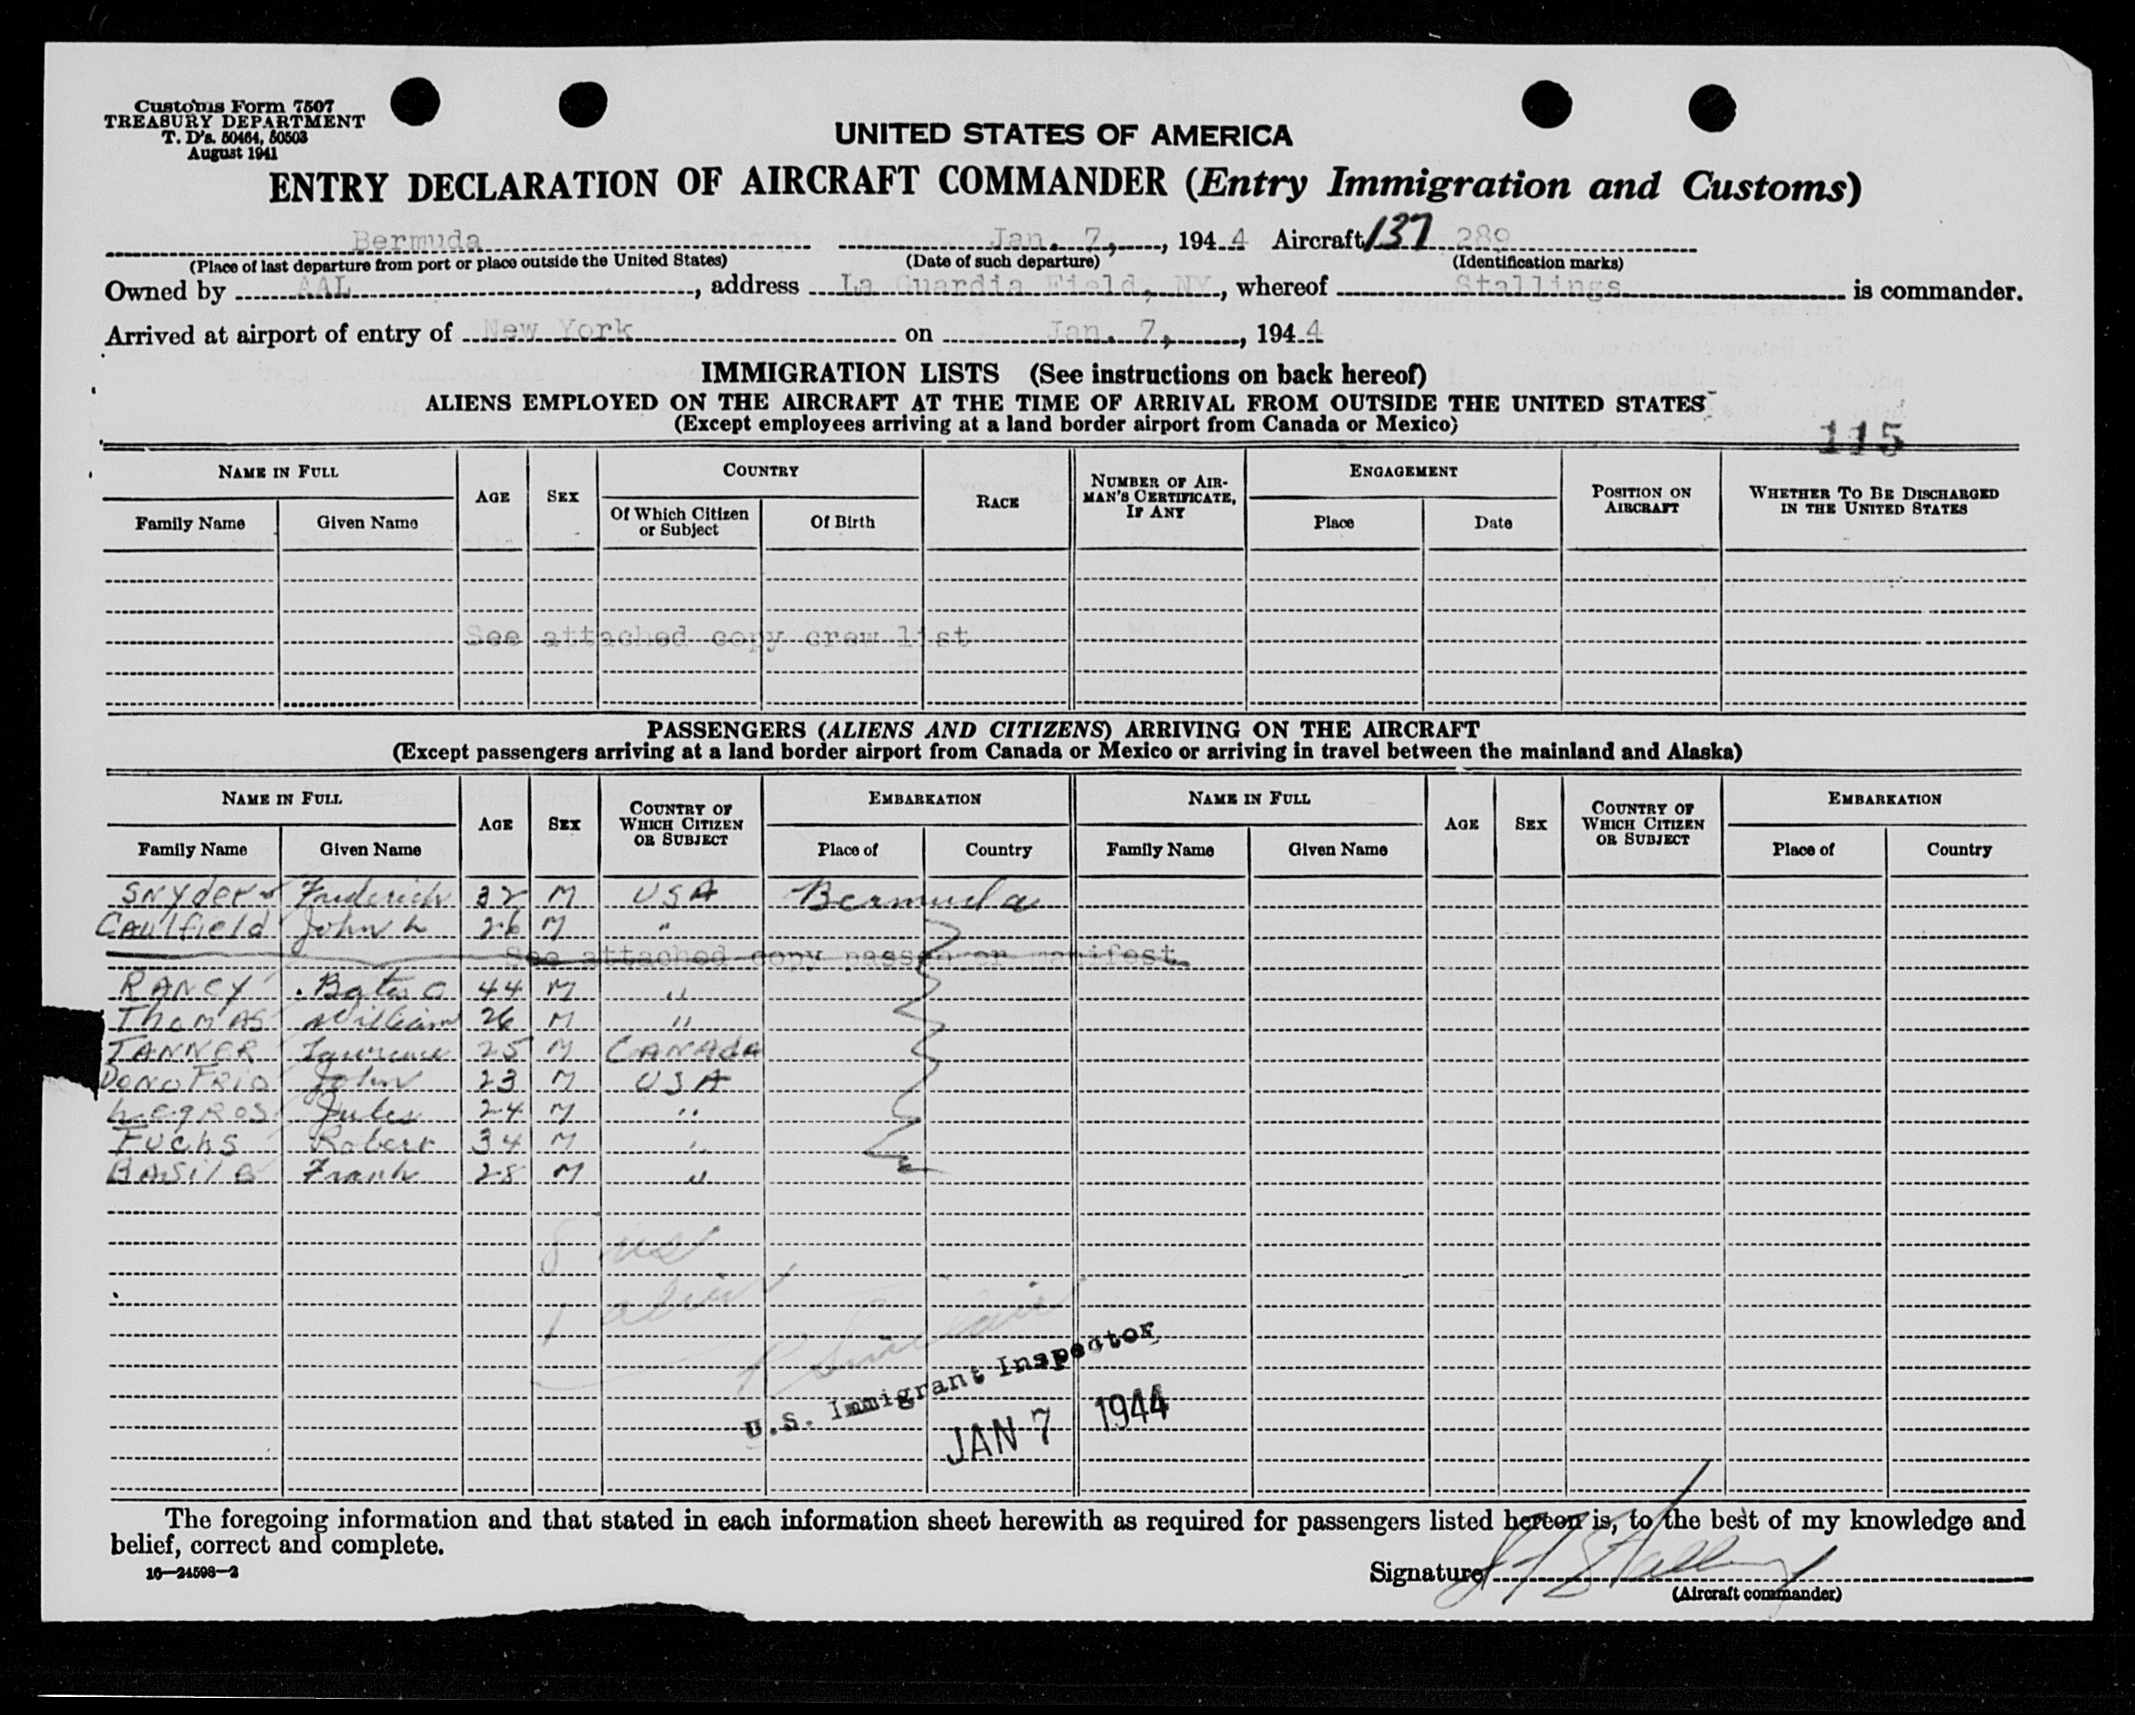 Customs Form 7507
TREASURY DEPARTMENT
T. D's. 50464, 50503
August 1941
UNITED STATES OF AMERICA
ENTRY DECLARATION OF AIRCRAFT COMMANDER (Entry Immigration and Customs)
Bermuda Jan. 7, , 194 4 Aircraft 137 289
(Place of last departure from port or place outside the United States) (Date of such departure) (Identification marks)
Owned by AAL , address La Guardia Field, NY , whereof Stallings is commander.
Arrived at airport of entry of New York on Jan. 7, , 194 4
IMMIGRATION LISTS (See instructions on back hereof)
ALIENS EMPLOYED ON THE AIRCRAFT AT THE TIME OF ARRIVAL FROM OUTSIDE THE UNITED STATES
(Except employees arriving at a land border airport from Canada or Mexico)
115
NAME IN FULL AGE SEX COUNTRY RACE NUMBER OF AIRMAN'S CERTIFICATE, IF ANY ENGAGEMENT POSITION ON AIRCRAFT WHETHER TO BE DISCHARGED IN THE UNITED STATES
Family Name Given Name Of Which Citizen or Subject Of Birth Place Date
See attached copy crew list
PASSENGERS (ALIENS AND CITIZENS) ARRIVING ON THE AIRCRAFT
(Except passengers arriving at a land border airport from Canada or Mexico or arriving in travel between the mainland and Alaska)
NAME IN FULL AGE SEX COUNTRY OF WHICH CITIZEN OR SUBJECT EMBARKATION NAME IN FULL AGE SEX COUNTRY OF WHICH CITIZEN OR SUBJECT EMBARKATION
Family Name Given Name Place of Country Family Name Given Name Place of Country
Snyder Frederick 32 M USA Bermuda
Caulfield John L 26 M "
See attached copy passenger manifest
RANCY Bates O 44 M "
Thomas William 26 M "
TANNER Lawrence 25 M CANADA
Donofrio John 23 M USA
Legros Jules 24 M "
Fuchs Robert 34 M "
BASILE Frank 28 M "
8 us
1 alien
R Sinclair
U.S. Immigrant Inspector
JAN 7 1944
The foregoing information and that stated in each information sheet herewith as required for passengers listed hereon is, to the best of my knowledge and
belief, correct and complete.
16—24598-2
Signature Stallings
(Aircraft commander)